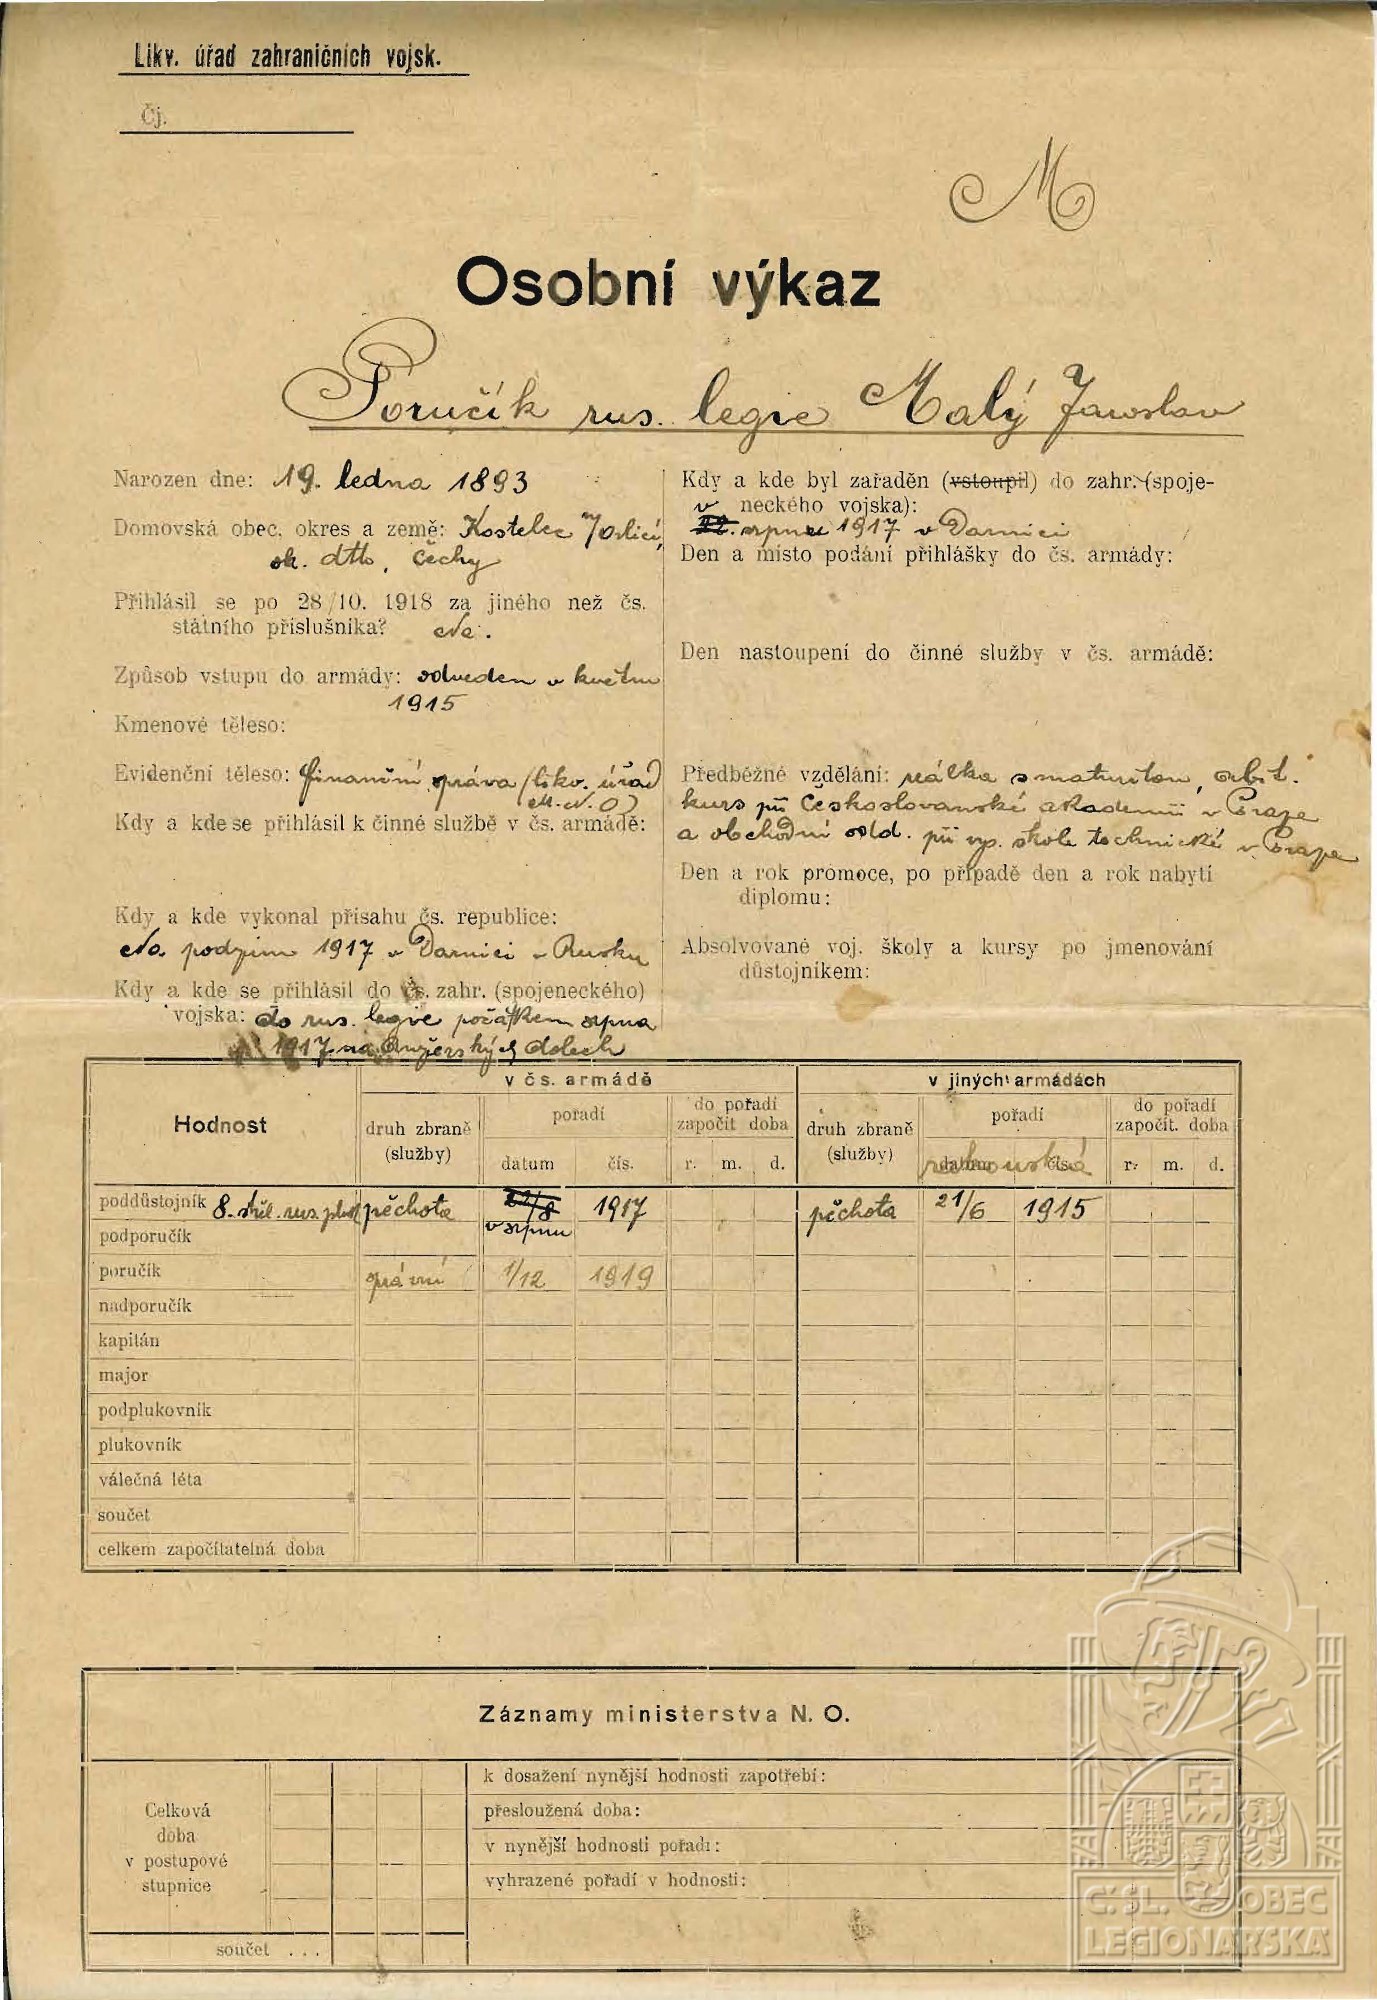 Likv. úřad zahraničních vojsk.
Čj.
M
Osobní výkaz
Poručík rus. legie Malý Jaroslav
Narozen dne: 19. ledna 1893
Domovská obec, okres a země: Kostelec n/Orlicí,
ok. dtto, Čechy
Přihlásil se po 28/10. 1918 za jiného než čs.
státního příslušníka? Ne.
Způsob vstupu do armády: odveden v květnu
1915
Kmenové těleso:
Evidenční těleso: finanční správa (likv. úřad
M.N.O)
Kdy a kde se přihlásil k činné službě v čs. armádě:
Kdy a kde vykonal přísahu čs. republice:
Na podzim 1917 v Darnici v Rusku
Kdy a kde se přihlásil do čs. zahr. (spojeneckého)
vojska: do rus. legie počátkem srpna
1917 na dolech
Kdy a kde byl zařaděn (vstoupil) do zahr. (spoje-
neckého vojska):
v
22. srpnu 1917 v Darnici
Den a místo podání přihlášky do čs. armády:
Den nastoupení do činné služby v čs. armádě:
Předběžné vzdělání: reálka s maturitou, abit.
kurs při Českoslovanské akademii v Praze
a obchodní odd. při vys. škole technické v Praze
Den a rok promoce, po případě den a rok nabytí
diplomu:
Absolvované voj. školy a kursy po jmenování
důstojníkem:
Hodnost
v čs. armádě
v jiných armádách
druh zbraně
(služby)
pořadí
do pořadí
započít doba
druh zbraně
(služby)
pořadí
do pořadí
započít. doba
datum čís. r. m. d. datum čís. r. m. d.
rakouské
poddůstojník 8. střel. rus. pluk pěchota 22/8 1917 pěchota 21/6 1915
v srpnu
podporučík
poručík správní 1/12 1919
nadporučík
kapitán
major
podplukovník
plukovník
válečná léta
součet
celkem započítatelná doba
Záznamy ministerstva N. O.
Celková
doba
v postupové
stupnice
součet . . .
k dosažení nynější hodnosti zapotřebí:
přesloužená doba:
v nynější hodnosti pořadí:
vyhrazené pořadí v hodnosti:
Č. SL. OBEC
LEGIONÁŘSKÁ